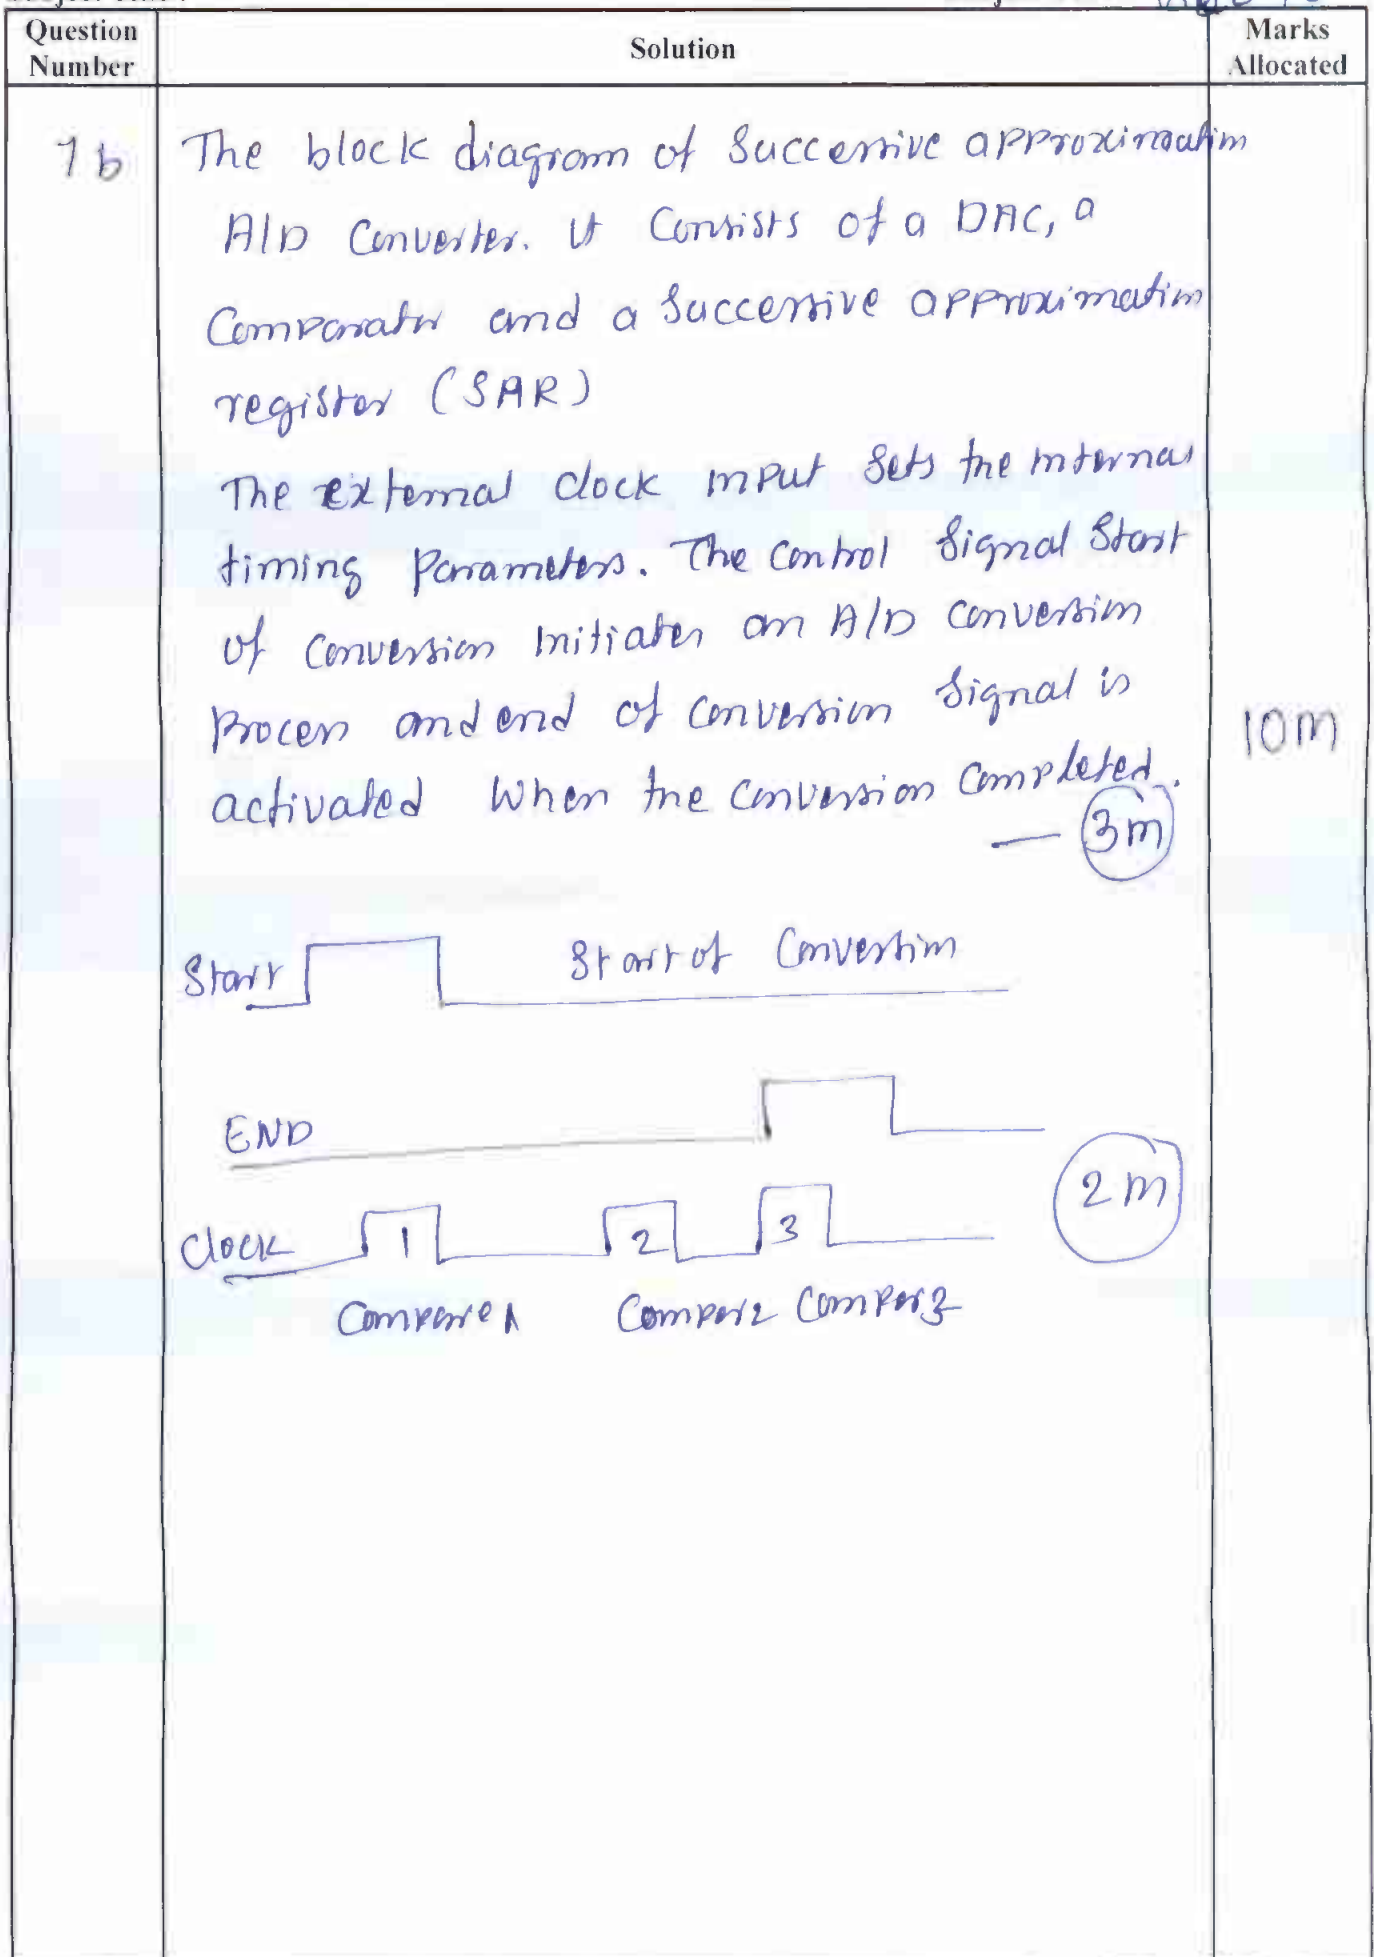 Question Number
Solution
Marks Allocated
7b
The block diagram of Successive approximation
A/D Converter. It Consists of a DAC, a
Comparator and a Successive approximation
register (SAR)
The external clock input Sets the internal
timing Parameters. The Control Signal Start
of Conversion initiates an A/D conversion
Process and end of conversion Signal is
activated When the conversion Completed.
— 3m
10m
Start
Start of Conversion
END
2m
Clock 1 2 3
Compare 1 Compar2 Compar3